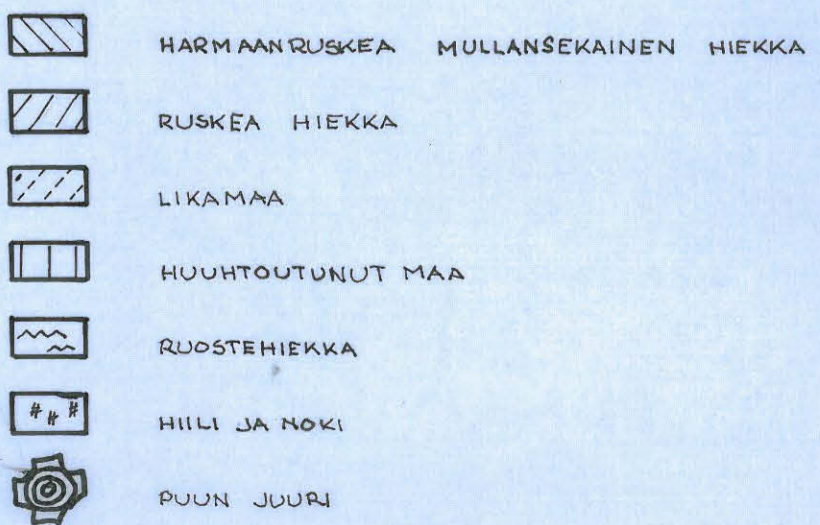 HARMAANRUSKEA MULLANSEKAINEN HIEKKA
RUSKEA HIEKKA
LIKAMAA
HUUHTOUTUNUT MAA
RUOSTEHIEKKA
HIILI JA NOKI
PUUN JUURI